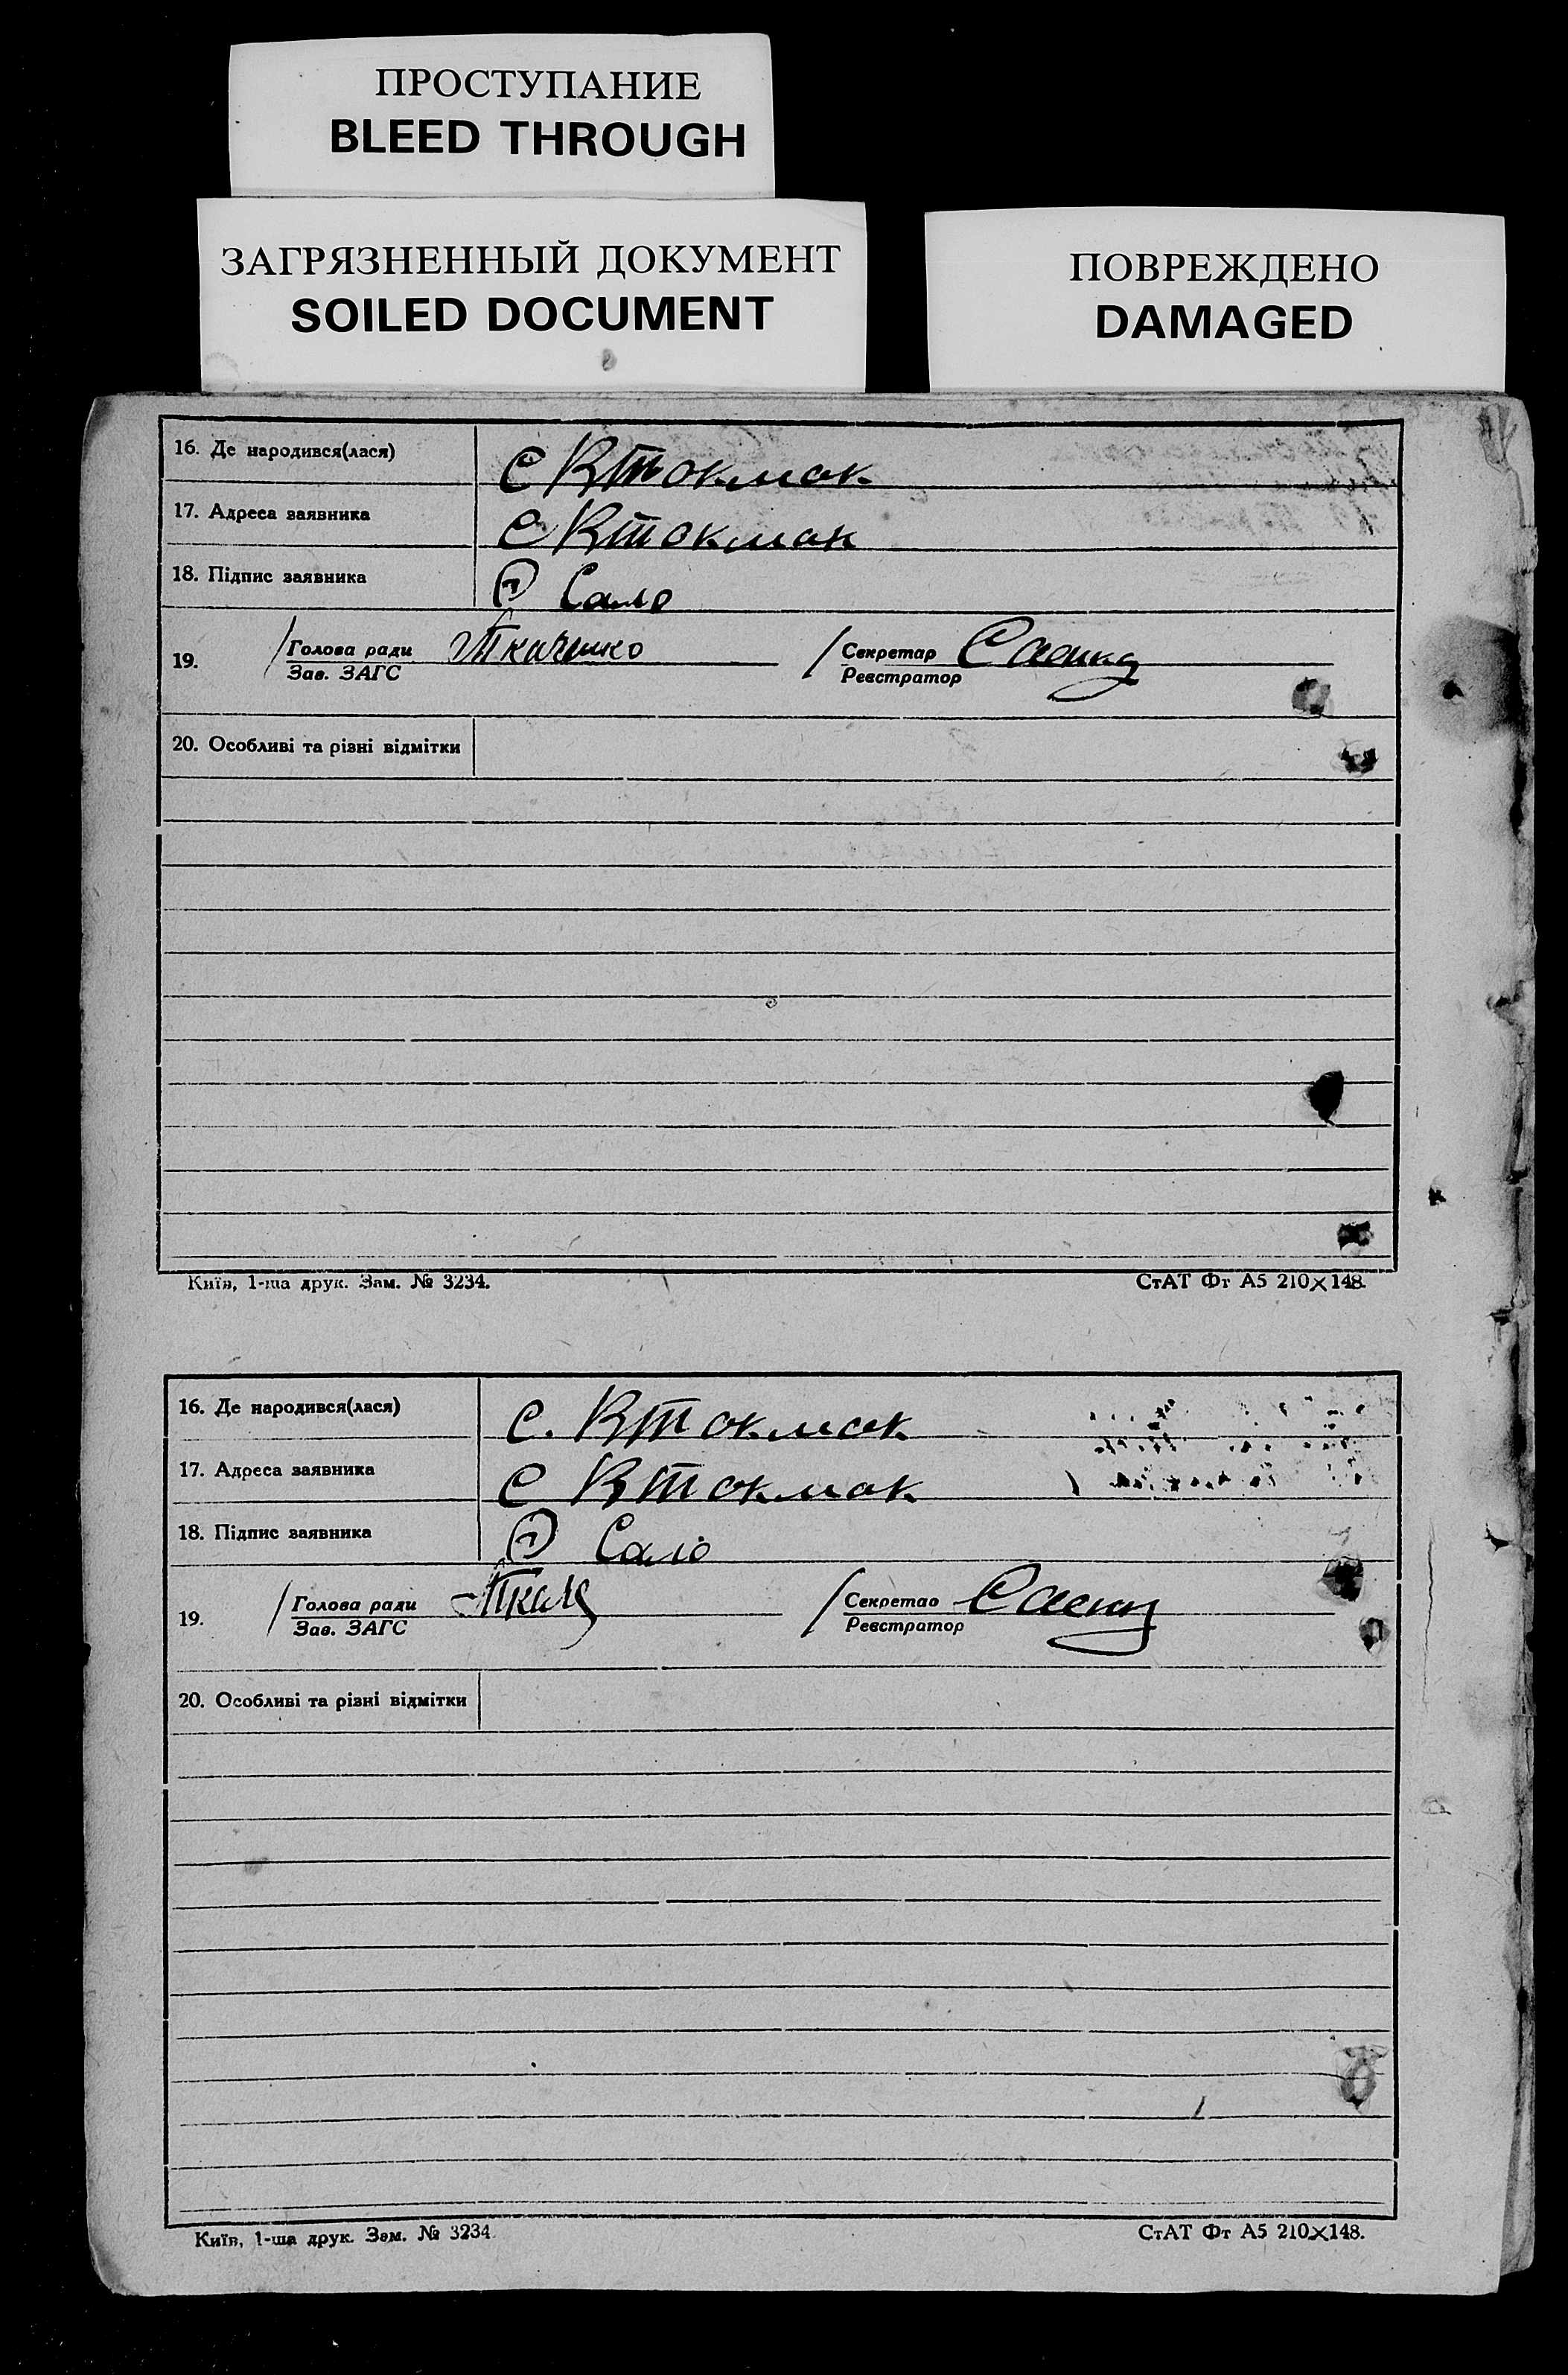 ПРОСТУПАНИЕ
BLEED THROUGH
ЗАГРЯЗНЕННЫЙ ДОКУМЕНТ
SOILED DOCUMENT
ПОВРЕЖДЕНО
DAMAGED
16. Де народився(лася) с Втокмак
17. Адреса заявника с Втокмак
18. Підпис заявника Сало
19. Голова ради Ткаченко Секретар
Зав. ЗАГС Реєстратор
20. Особливі та різні відмітки
Київ, 1-ша друк. Зам. № 3234. СтАТ Фт А5 210×148.
16. Де народився(лася) с. Втокмак
17. Адреса заявника с Втокмак
18. Підпис заявника Сало
19. Голова ради Секретар
Зав. ЗАГС Реєстратор
20. Особливі та різні відмітки
Київ, 1-ша друк. Зам. № 3234 СтАТ Фт А5 210×148.